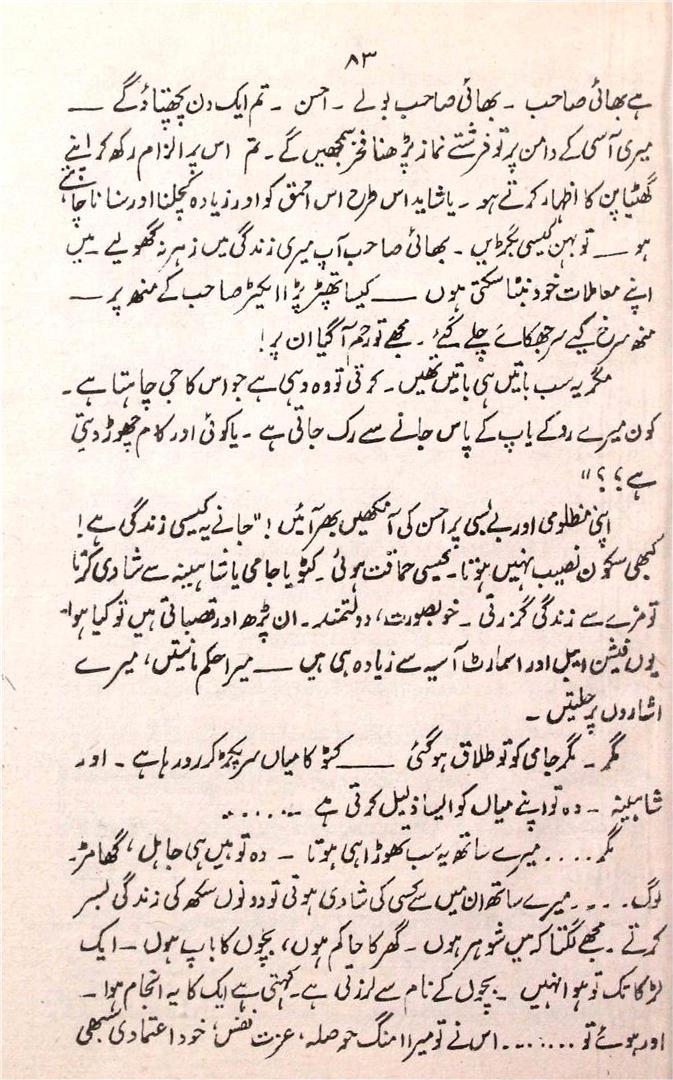 ۸۳
ہے بھائی صاحب ۔ بھائی صاحب بولے ۔ احسن ۔ تم ایک دن پچھتاؤ گے ــــ
میری آسی کے دامن پر تو فرشتے نماز پڑھنا فخر سمجھیں گے ۔ تم اس پر الزام رکھ کر اپنے
گھٹیا پن کا اظہار کرتے ہو ۔ یا شاید اس طرح اس احمق کو اور زیادہ کچلنا اور ستانا چاہتے
ہو ــــ تو بہن کیسی بگڑیں ۔ بھائی صاحب آپ میری زندگی میں زہر نہ گھولیے ۔ میں
اپنے معاملات خود نبٹا سکتی ہوں ــــ کیسا تھپڑ پڑا ایکٹر صاحب کے منھ پر ــــ
منھ سرخ کیے سر جھکائے چلے گئے ۔ مجھے تو رحم آ گیا ان پر !
مگر یہ سب باتیں ہی باتیں تھیں ۔ کرتی تو وہ وہی ہے جو اس کا جی چاہتا ہے ۔
کون میرے روکے باپ کے پاس جانے سے رک جاتی ہے ۔ یا کوئی اور کام چھوڑ دیتی
ہے ؟ ؟ "
اپنی مظلومی اور بے بسی پر احسن کی آنکھیں بھر آئیں ! " جانے یہ کیسی زندگی ہے !
کبھی سکون نصیب نہیں ہوتا ۔ کیسی حماقت ہوئی ۔ کٹو یا جامی یا شاہینہ سے شادی کرتا
تو مزے سے زندگی گزرتی ۔ خوبصورت ، دولتمند ۔ ان پڑھ اور قصباتی ہیں تو کیا ہوا ۔
یوں فیشن ایبل اور اسمارٹ آسیہ سے زیادہ ہی ہیں ــــ میرا حکم مانتیں ، میرے
اشاروں پر چلتیں ۔
مگر ۔ مگر جامی کو تو طلاق ہو گئی ــــ کٹو کا میاں سر پکڑ کر رو رہا ہے ۔ اور
شاہینہ ۔ وہ تو اپنے میاں کو ایسا ذلیل کرتی ہے ۔ ......
مگر .... میرے ساتھ یہ سب تھوڑا ہی ہوتا ۔ وہ تو ہیں ہی جاہل ، گھامڑ
لوگ .... میرے ساتھ ان میں سے کسی کی شادی ہوتی تو دونوں سکھ کی زندگی بسر
کرتے ۔ مجھے لگتا کہ میں شوہر ہوں ۔ گھر کا حاکم ہوں ، بچوں کا باپ ہوں ۔ ایک
لڑکا تک تو ہوا نہیں ۔ بچوں کے نام سے لرزتی ہے ۔ کہتی ہے ایک کا یہ انجام ہوا ۔
اور ہوئے تو ........ اس نے تو میرا امنگ حوصلہ ، عزت نفس ، خود اعتمادی سبھی